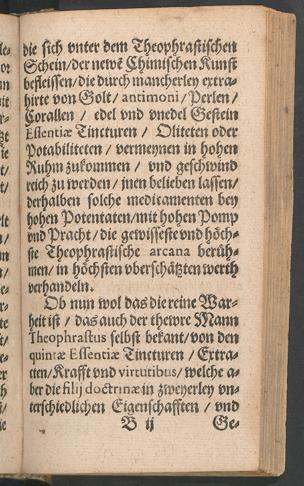 die sich vnter dem Theophrastischen
Schein/der newẽ Chimischen Kunst
befleissen/die durch mancherley extra-
hirte von Golt/ antimoni/Perlen/
Corallen / edel vnd vnedel Gestein
Essentiæ Tincturen / Oliteten oder
Potabiliteten / vermeynen in hohen
Ruhm zukommen / vnd geschwind
reich zu werden/ jnen belieben lassen/
derhalben solche medicamenten bey
hohen Potentaten/mit hohen Pomp
vnd Pracht/die gewisseste vnd höch-
ste Theophrastische arcana berüh-
men/ in höchsten vberschätzten werth
verhandeln.
Ob nun wol das die reine War-
heit ist / das auch der thewre Mann
Theophrastus selbst bekant/von den
quintæ Essentiæ Tincturen / Extra-
cten/Krafft vnd virtutibus/welche a-
ber die filij doctrinæ in zweyerley vn-
terschiedlichen Eigenschafften / vnd
B ij Ge-